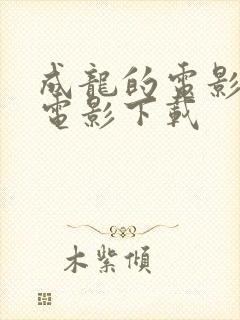 成龍的電影
電影下載
木紫傾